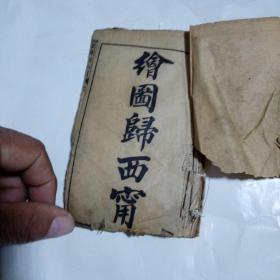 繪圖歸西甯